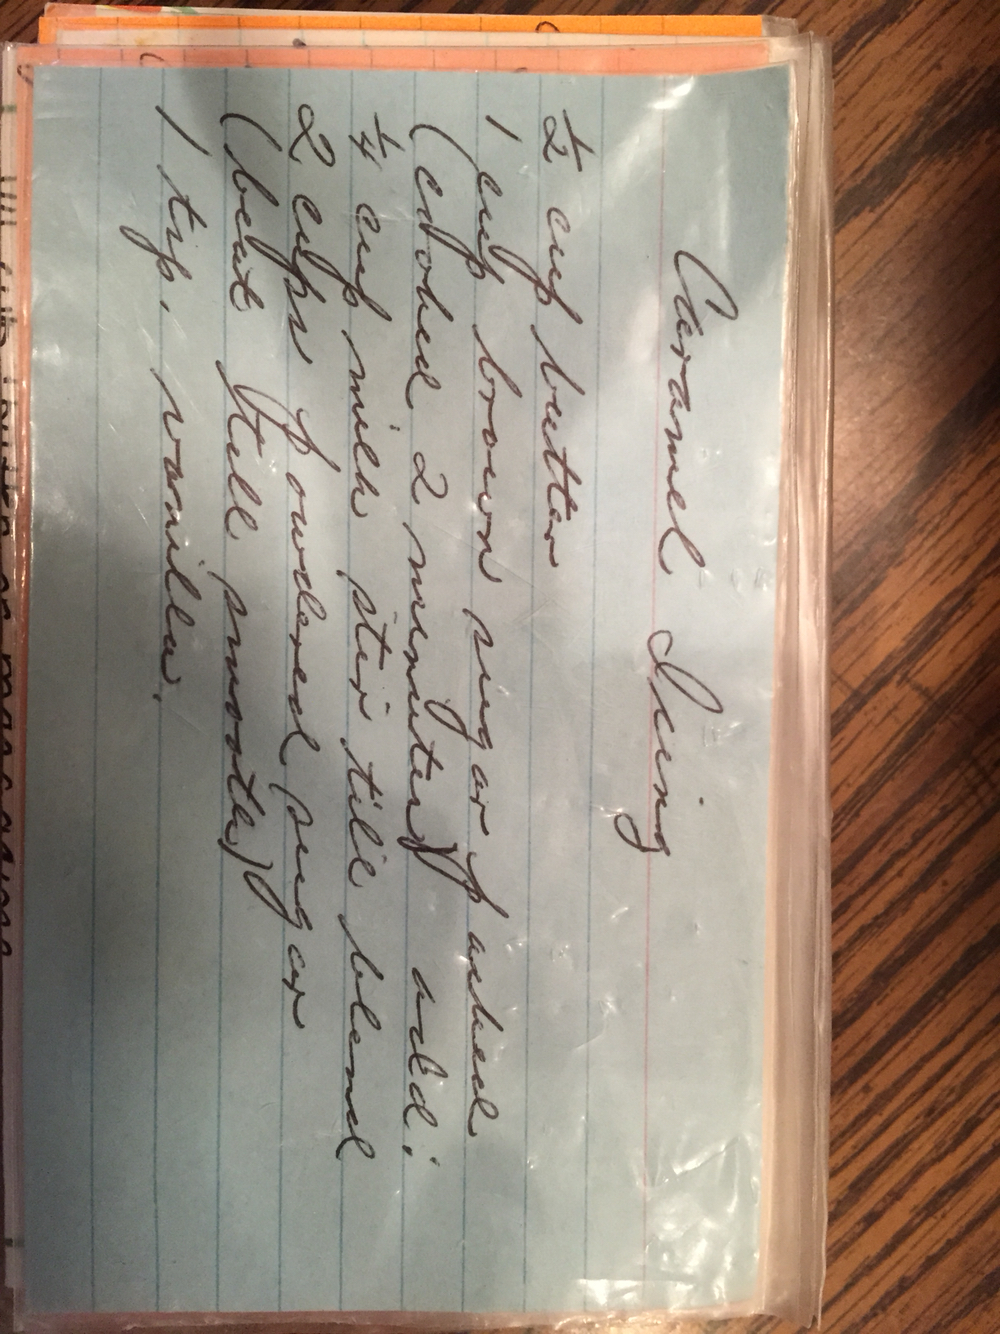 Caramel Icing
½ cup butter
1 cup brown sugar packed
(cooked 2 minutes) add:
¼ cup milk stir till blend
2 cups powdered sugar
(beat till smooth)
1 tsp. vanilla.